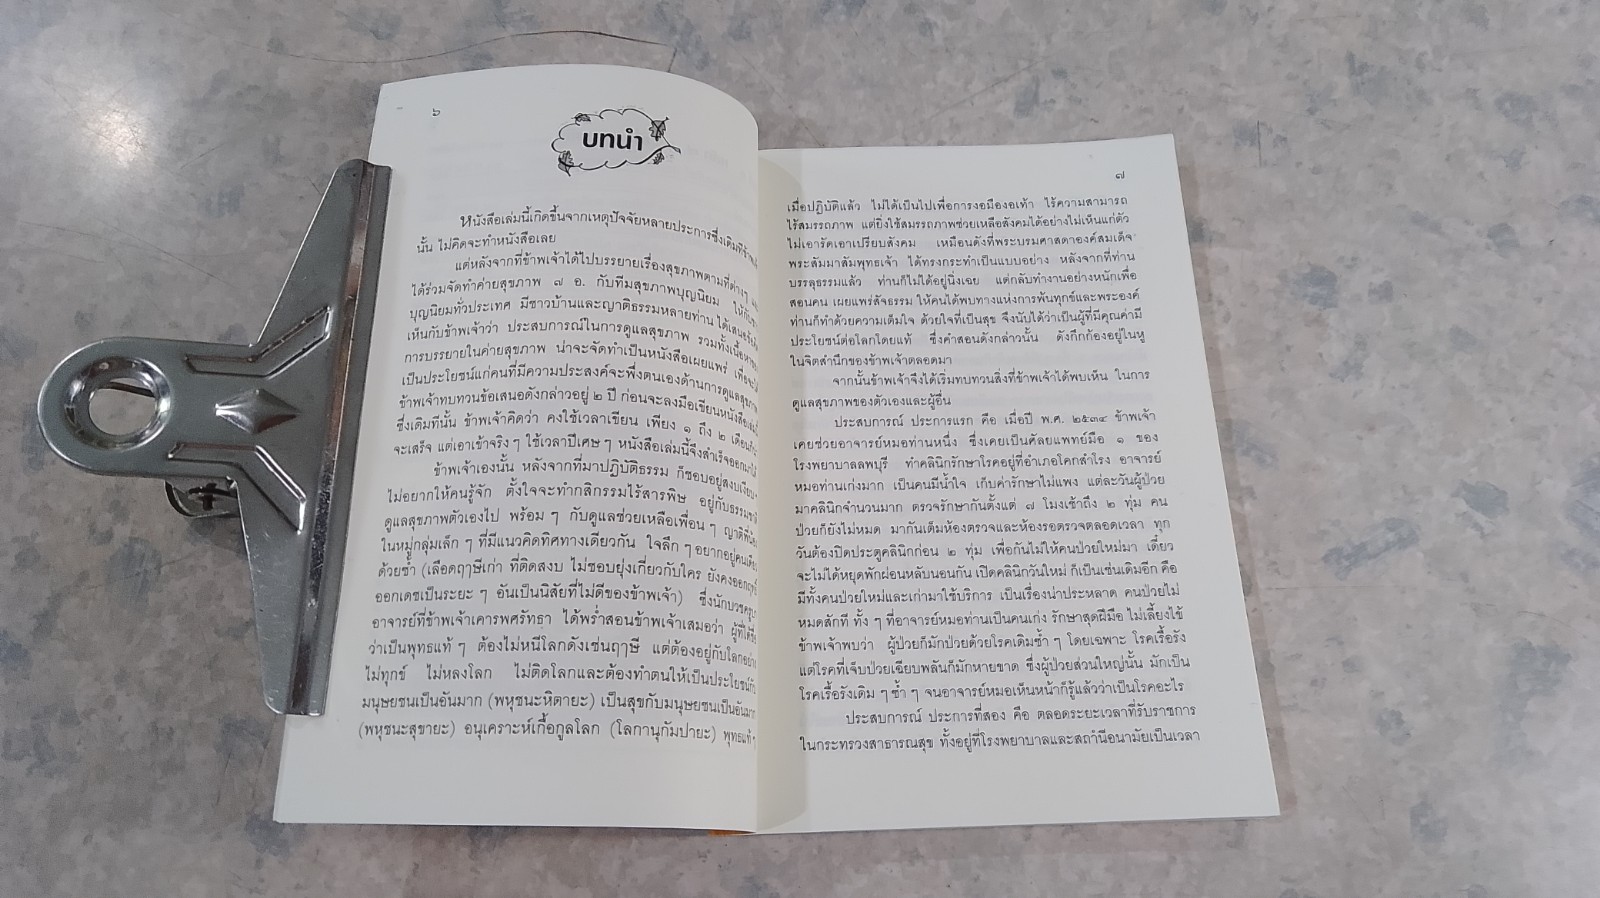 ๖
บทนำ
หนังสือเล่มนี้เกิดขึ้นจากเหตุปัจจัยหลายประการซึ่งเดิมที
นั้น ไม่คิดจะทำหนังสือเลย
แต่หลังจากที่ข้าพเจ้าได้ไปบรรยายเรื่องสุขภาพตามที่ต่างๆ
ได้ร่วมจัดทำค่ายสุขภาพ ๗ อ. กับทีมสุขภาพบุญนิยม
บุญนิยมทั่วประเทศ มีชาวบ้านและญาติธรรมหลายท่าน
เห็นกับข้าพเจ้าว่า ประสบการณ์ในการดูแลสุขภาพ รวมทั้ง
การบรรยายในค่ายสุขภาพ น่าจะจัดทำเป็นหนังสือเผยแพร่
เป็นประโยชน์แก่คนที่มีความประสงค์จะพึ่งตนเองด้านการดูแลสุขภาพ
ข้าพเจ้าทบทวนข้อเสนอดังกล่าวอยู่ ๒ ปี ก่อนจะลงมือเขียนหนังสือ
ซึ่งเดิมทีนั้น ข้าพเจ้าคิดว่า คงใช้เวลาเขียน เพียง ๑ ถึง ๒ เดือน
จะเสร็จ แต่เอาเข้าจริง ๆ ใช้เวลาปีเศษ ๆ หนังสือเล่มนี้จึงสำเร็จออกมาได้
ข้าพเจ้าเองนั้น หลังจากที่มาปฏิบัติธรรม ก็ชอบอยู่สงบเงียบๆ
ไม่อยากให้คนรู้จัก ตั้งใจจะทำกสิกรรมไร้สารพิษ
ดูแลสุขภาพตัวเองไป พร้อม ๆ กับดูแลช่วยเหลือเพื่อน ๆ ญาติพี่น้อง
ในหมู่กลุ่มเล็ก ๆ ที่มีแนวคิดทิศทางเดียวกัน ใจลึก ๆ อยากอยู่คนเดียว
ด้วยซ้ำ (เลือดฤๅษีเก่า ที่ติดสงบ ไม่ชอบยุ่งเกี่ยวกับใคร ยังคงออกฤทธิ์
ออกเดชเป็นระยะ ๆ อันเป็นนิสัยที่ไม่ดีของข้าพเจ้า) ซึ่งนักบวช
อาจารย์ที่ข้าพเจ้าเคารพศรัทธา ได้พร่ำสอนข้าพเจ้าเสมอว่า
ว่าเป็นพุทธแท้ ๆ ต้องไม่หนีโลกดังเช่นฤๅษี แต่ต้องอยู่กับโลกอย่าง
ไม่ทุกข์ ไม่หลงโลก ไม่ติดโลกและต้องทำตนให้เป็นประโยชน์กับ
มนุษยชนเป็นอันมาก (พหุชนะหิตายะ) เป็นสุขกับมนุษยชนเป็นอันมาก
(พหุชนะสุขายะ) อนุเคราะห์เกื้อกูลโลก (โลกานุกัมปายะ) พุทธแท้ ๆ
๗
เมื่อปฏิบัติแล้ว ไม่ได้เป็นไปเพื่อการงอมืองอเท้า ไร้ความสามารถ
ไร้สมรรถภาพ แต่ยิ่งใช้สมรรถภาพช่วยเหลือสังคมได้อย่างไม่เห็นแก่ตัว
ไม่เอารัดเอาเปรียบสังคม เหมือนดังที่พระบรมศาสดาองค์สมเด็จ
พระสัมมาสัมพุทธเจ้า ได้ทรงกระทำเป็นแบบอย่าง หลังจากที่ท่าน
บรรลุธรรมแล้ว ท่านก็ไม่ได้อยู่นิ่งเฉย แต่กลับทำงานอย่างหนักเพื่อ
สอนคน เผยแพร่สัจธรรม ให้คนได้พบทางแห่งการพ้นทุกข์และพระองค์
ท่านก็ทำด้วยความเต็มใจ ด้วยใจที่เป็นสุข จึงนับได้ว่าเป็นผู้ที่มีคุณค่ามี
ประโยชน์ต่อโลกโดยแท้ ซึ่งคำสอนดังกล่าวนั้น ดังกึกก้องอยู่ในหู
ในจิตสำนึกของข้าพเจ้าตลอดมา
จากนั้นข้าพเจ้าจึงได้เริ่มทบทวนสิ่งที่ข้าพเจ้าได้พบเห็น ในการ
ดูแลสุขภาพของตัวเองและผู้อื่น
ประสบการณ์ ประการแรก คือ เมื่อปี พ.ศ. ๒๕๓๔ ข้าพเจ้า
เคยช่วยอาจารย์หมอท่านหนึ่ง ซึ่งเคยเป็นศัลยแพทย์มือ ๑ ของ
โรงพยาบาลลพบุรี ทำคลินิกรักษาโรคอยู่ที่อำเภอโคกสำโรง อาจารย์
หมอท่านเก่งมาก เป็นคนมีน้ำใจ เก็บค่ารักษาไม่แพง แต่ละวันผู้ป่วย
มาคลินิกจำนวนมาก ตรวจรักษากันตั้งแต่ ๗ โมงเช้าถึง ๒ ทุ่ม คน
ป่วยก็ยังไม่หมด มากันเต็มห้องตรวจและห้องรอตรวจตลอดเวลา ทุก
วันต้องปิดประตูคลินิกก่อน ๒ ทุ่ม เพื่อกันไม่ให้คนป่วยใหม่มา เดี๋ยว
จะไม่ได้หยุดพักผ่อนหลับนอนกัน เปิดคลินิกวันใหม่ ก็เป็นเช่นเดิมอีก คือ
มีทั้งคนป่วยใหม่และเก่ามาใช้บริการ เป็นเรื่องน่าประหลาด คนป่วยไม่
หมดสักที ทั้ง ๆ ที่อาจารย์หมอท่านเป็นคนเก่ง รักษาสุดฝีมือ ไม่เลี้ยงไข้
ข้าพเจ้าพบว่า ผู้ป่วยก็มักป่วยด้วยโรคเดิมซ้ำ ๆ โดยเฉพาะ โรคเรื้อรัง
แต่โรคที่เจ็บป่วยเฉียบพลันก็มักหายขาด ซึ่งผู้ป่วยส่วนใหญ่นั้น มักเป็น
โรคเรื้อรังเดิม ๆ ซ้ำ ๆ จนอาจารย์หมอเห็นหน้าก็รู้แล้วว่าเป็นโรคอะไร
ประสบการณ์ ประการที่สอง คือ ตลอดระยะเวลาที่รับราชการ
ในกระทรวงสาธารณสุข ทั้งอยู่ที่โรงพยาบาลและสถานีอนามัยเป็นเวลา